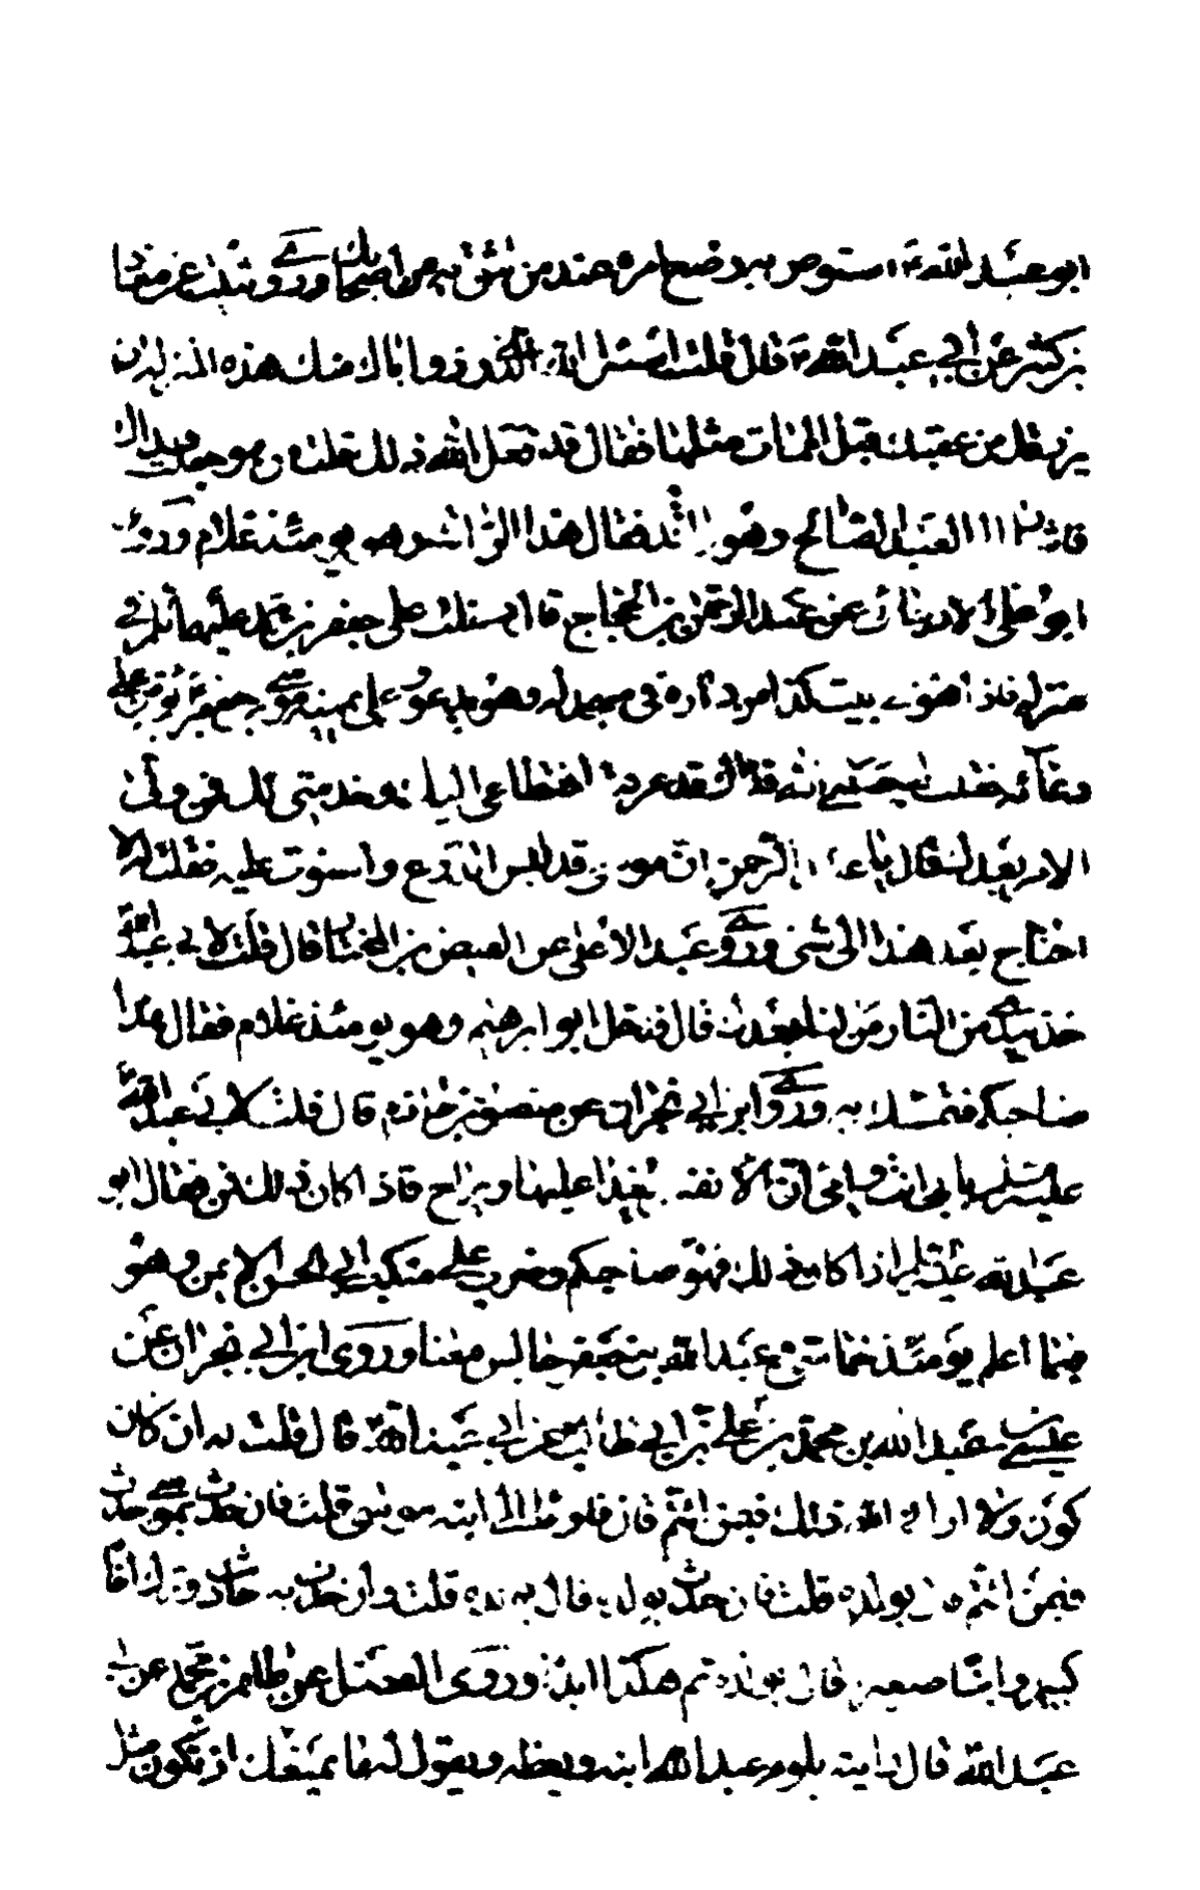 ابو عبد الله ع استوص به وضع امره عند من تثق به من اصحابك وروى ثبيت عن معاذ
بن كثير عن ابي عبد الله ع قال قلت اسئل الله الذي رزق اباك منك هذه المنزلة ان
يرزقك من عقبك قبل الممات مثلها فقال قد فعل الله ذلك قلت من هو جعلت فداك
فاشار الى العبد الصالح وهو راقد فقال هذا الراقد وهو يومئذ غلام وروى
ابو علي الارجاني عن عبد الرحمن بن الحجاج قال دخلت على جعفر بن محمد عليهما السلم في
منزله فاذا هو في بيت كذا من داره في مسجد له وهو يدعو وعلى يمينه موسى بن جعفر يؤمن على
دعائه فقلت له جعلني الله فداك قد عرفت انقطاعي اليك وخدمتي لك فمن ولي
الامر بعدك قال يا عبد الرحمن ان موسى قد لبس الدرع واستوت عليه فقلت له لا
احتاج بعد هذا الى شئ وروى عبد الاعلى عن الفيض بن المختار قال قلت لابي عبد الله ع
خذ بيدي من النار من لنا بعدك قال فدخل ابو ابرهيم وهو يومئذ غلام فقال هذا
صاحبكم فتمسك به وروى ابن ابي نجران عن منصور بن حازم قال قلت لابي عبد الله
عليه السلم بابي انت وامي ان الانفس يغدا عليها ويراح فاذا كان ذلك فمن فقال ابو
عبد الله عليه السلم اذا كان ذلك فهو صاحبكم وضرب على منكب ابي الحسن الايمن وهو
فيما اعلم يومئذ خماسي وعبد الله بن جعفر جالس معنا وروى ابن ابي نجران عن
عيسى بن عبد الله بن محمد بن علي بن ابي طالب عن ابي عبد الله ع قال قلت له ان كان
كون ولا اراني الله ذلك فبمن ائتم قال فاومأ الى ابنه موسى قلت فان حدث بموسى حدث
فبمن ائتم قال بولده قلت فان حدث بولده قال بولده قلت وان حدث به حادث وترك اخا
كبيرا وابنا صغيرا قال بولده ثم هكذا ابدا وروى الفضل عن طاهر بن محمد عن ابي
عبد الله ع قال رايته يلوم عبد الله ابنه ويعظه ويقول له ما يمنعك ان تكون مثل